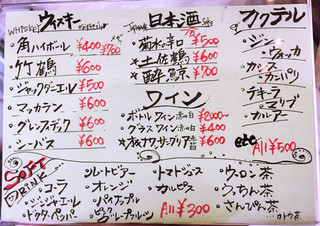 ウィスキー
WHISKEY
・角ハイボール ¥400 ¥700
・竹鶴 ¥600
・ジャックダニエル ¥500
・マッカラン ¥600
・グレンフィデック ¥600
・シーバス ¥600
日本酒 Sake
・菊水の辛口 ¥500
・土佐鶴 ¥600
・酔鯨 ¥700
ワイン
・ボトルワイン 赤・白 ¥2000〜
・グラスワイン 赤・白 ¥400
カクテル
・ジン
・ウォッカ
・カシス
・カンパリ
・テキーラ
・マリブ
・カルアー
etc
All ¥500
SOFT DRINK
・コーラ
・ジンジャエール
・ドクターペッパー
・ルートビアー
・オレンジ
・パイナップル
・ピンクグレープフルーツ
・トマトジュース
・カルピス
All ¥300
・ウーロン茶
・うっちん茶
・さんぴん茶